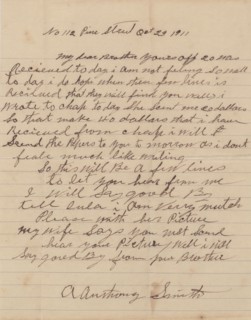 No 112 Pine Street Oct 29 1911
My dear Brother yours off 20 was
Recieved to day i am not feling so well
to day i do hope when thes few lines is
Recieved that they will find you well i
wrote to chap to day She Sent me 20 dollars
So that make 40 dollars that i have
Recieved from chap i will
Send the Papers to you to morrow as i dont
feale much like writing
So this will Be a few lines
to let you hear from me
I will Say good By
tell i am very much
Please with her Picture
My wife Says you must Send
her your Picture Well i will
Say good By from your Brother
Anthony Smith